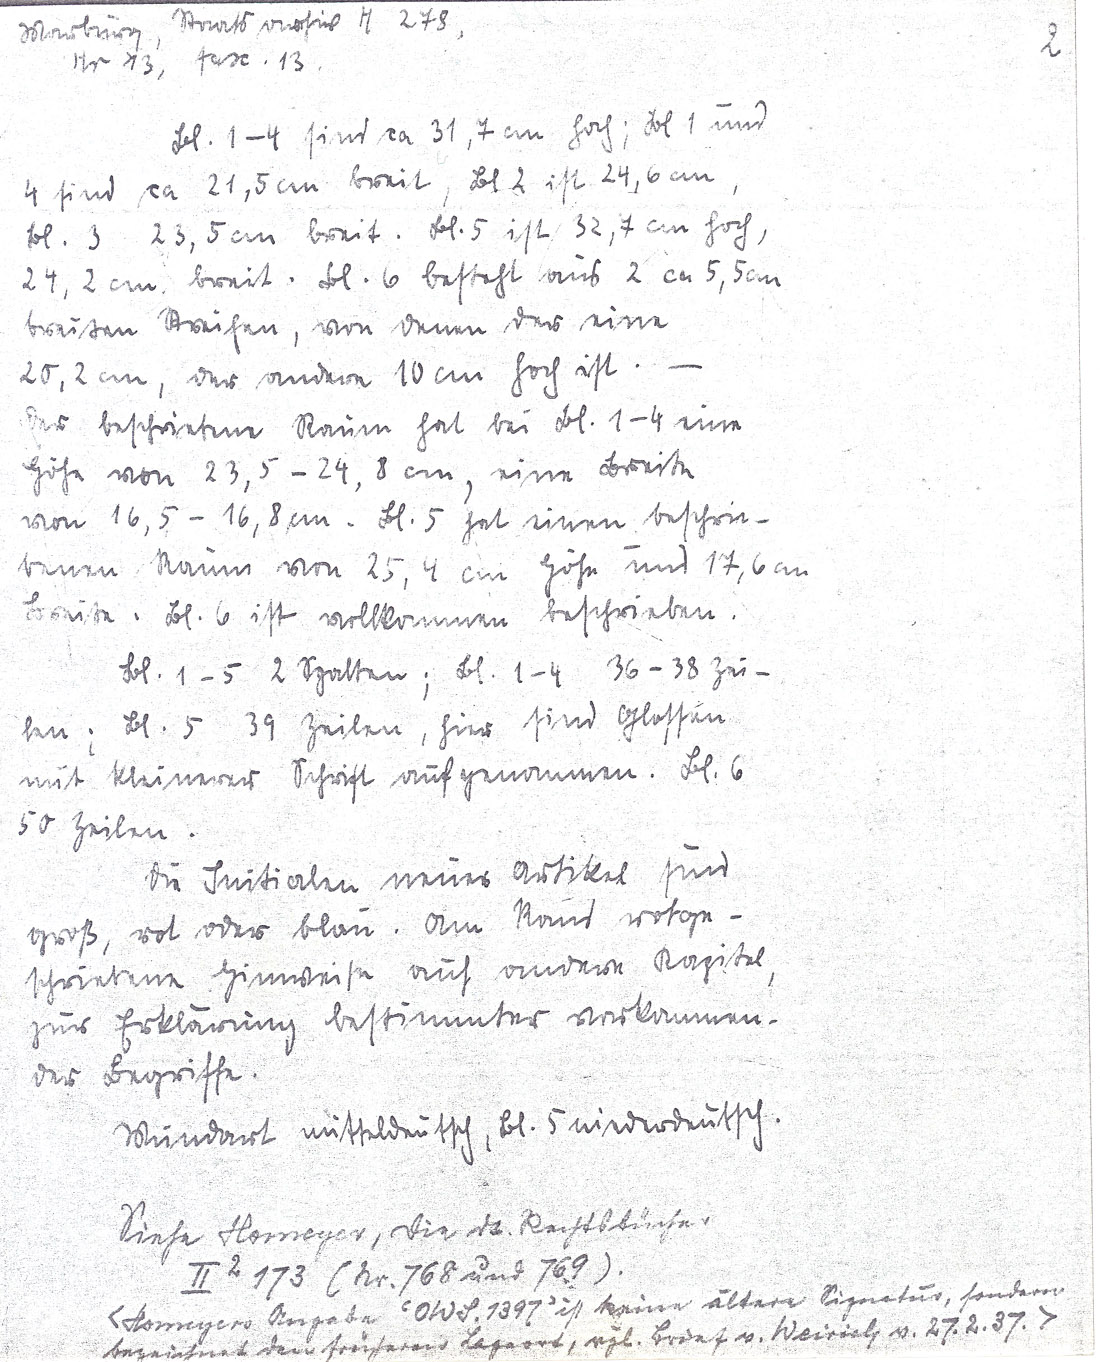 Marburg, Staatsarchiv H 278,
Nr 13, fasc. 13.
2
Bl. 1–4 sind ca 31,7 cm hoch; Bl 1 und
4 sind ca 21,5 cm breit, Bl 2 ist 24,6 cm,
Bl. 3 23,5 cm breit. Bl. 5 ist 32,7 cm hoch,
24,2 cm breit. Bl. 6 besteht aus 2 ca 5,5 cm
breiten Streifen, von denen der eine
20,2 cm, der andere 10 cm hoch ist. —
Der beschriebene Raum hat bei Bl. 1–4 eine
Höhe von 23,5 – 24,8 cm, eine Breite
von 16,5 – 16,8 cm. Bl. 5 hat einen beschrie-
benen Raum von 25,4 cm Höhe und 17,6 cm
Breite. Bl. 6 ist vollkommen beschrieben.
Bl. 1–5 2 Spalten; Bl. 1–4 36–38 Zei-
len; Bl. 5 39 Zeilen, hier sind Glossen
mit kleinerer Schrift aufgenommen. Bl. 6
50 Zeilen.
Die Initialen neuer Artikel sind
groß, rot oder blau. Am Rand rotge-
schriebene Hinweise auf andere Kapitel,
zur Erklärung bestimmter vorkommen-
der Begriffe.
Mundart mitteldeutsch, Bl. 5 niederdeutsch.
Siehe Homeyer, Die dt. Rechtsbücher
II² 173 (Nr. 768 und 769).
<Homeyers Angabe 'OWS. 1397' ist keine ältere Signatur, sondern
bezeichnet den früheren Lageort, vgl. Brief v. Weirich v. 27.2.37.>